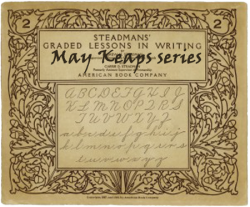 STEADMANS'
2 GRADED LESSONS IN WRITING 2
May Keaps series
AMERICAN BOOK COMPANY
A B C D E F G H I J
K L M N O P Q R S
T U V W X Y Z
a b c d e f g h i j
k l m n o p q r s
t u v w x y z